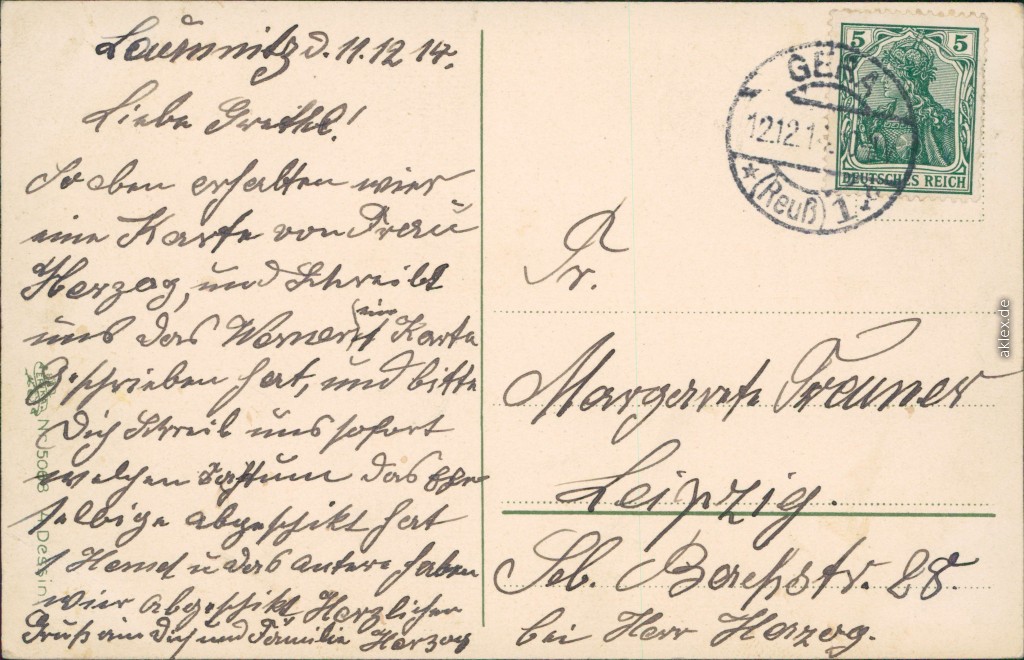 Laumnitz d. 11.12 14.
Liebe Grethl!
So eben erhalten wier
eine Karte von Frau
Herzog, und Schreibt
uns das Werner ein Karte
geschrieben hat, und bitte
Dich Schreib uns sofort
welchen Dahtum das
selbige abgeschikt hat
Hemd u das antere haben
wier abgeschikt Herzlicher
Gruß ann Dich und Familie Herzog
No 5088
Dessin
5 5
DEUTSCHES REICH
GERA
12.12.14.
(Reuß) 1
Fr.
Margarete Trauner
Leipzig.
Seb. Bachstr. 28.
bei Herr Herzog.
aklex.de